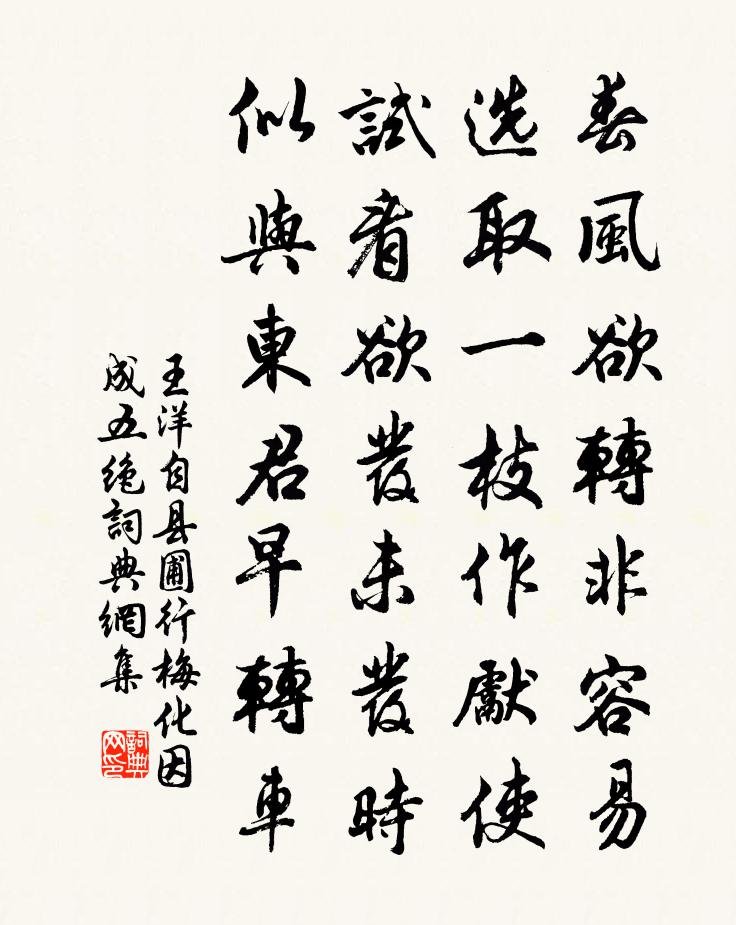 春風欲轉非容易
选取一枝作獻使
試看欲發未發時
似與東君早轉車
王洋自县圃行梅化因
成五绝詞典網集
詞典网印